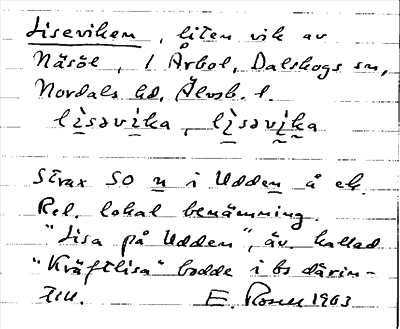 Liseviken, liten vik av
Näsöl, / Årbol, Dalskogs sn,
Nordals hd, Älvsb. l.
lìsəvìka, lìsəvìka
strax SO n i Udden å ek.
Rel. lokal benämning.
"Lisa på Udden", äv. kallad
"Kräftlisa" bodde i bs därin-
till. E. 1963